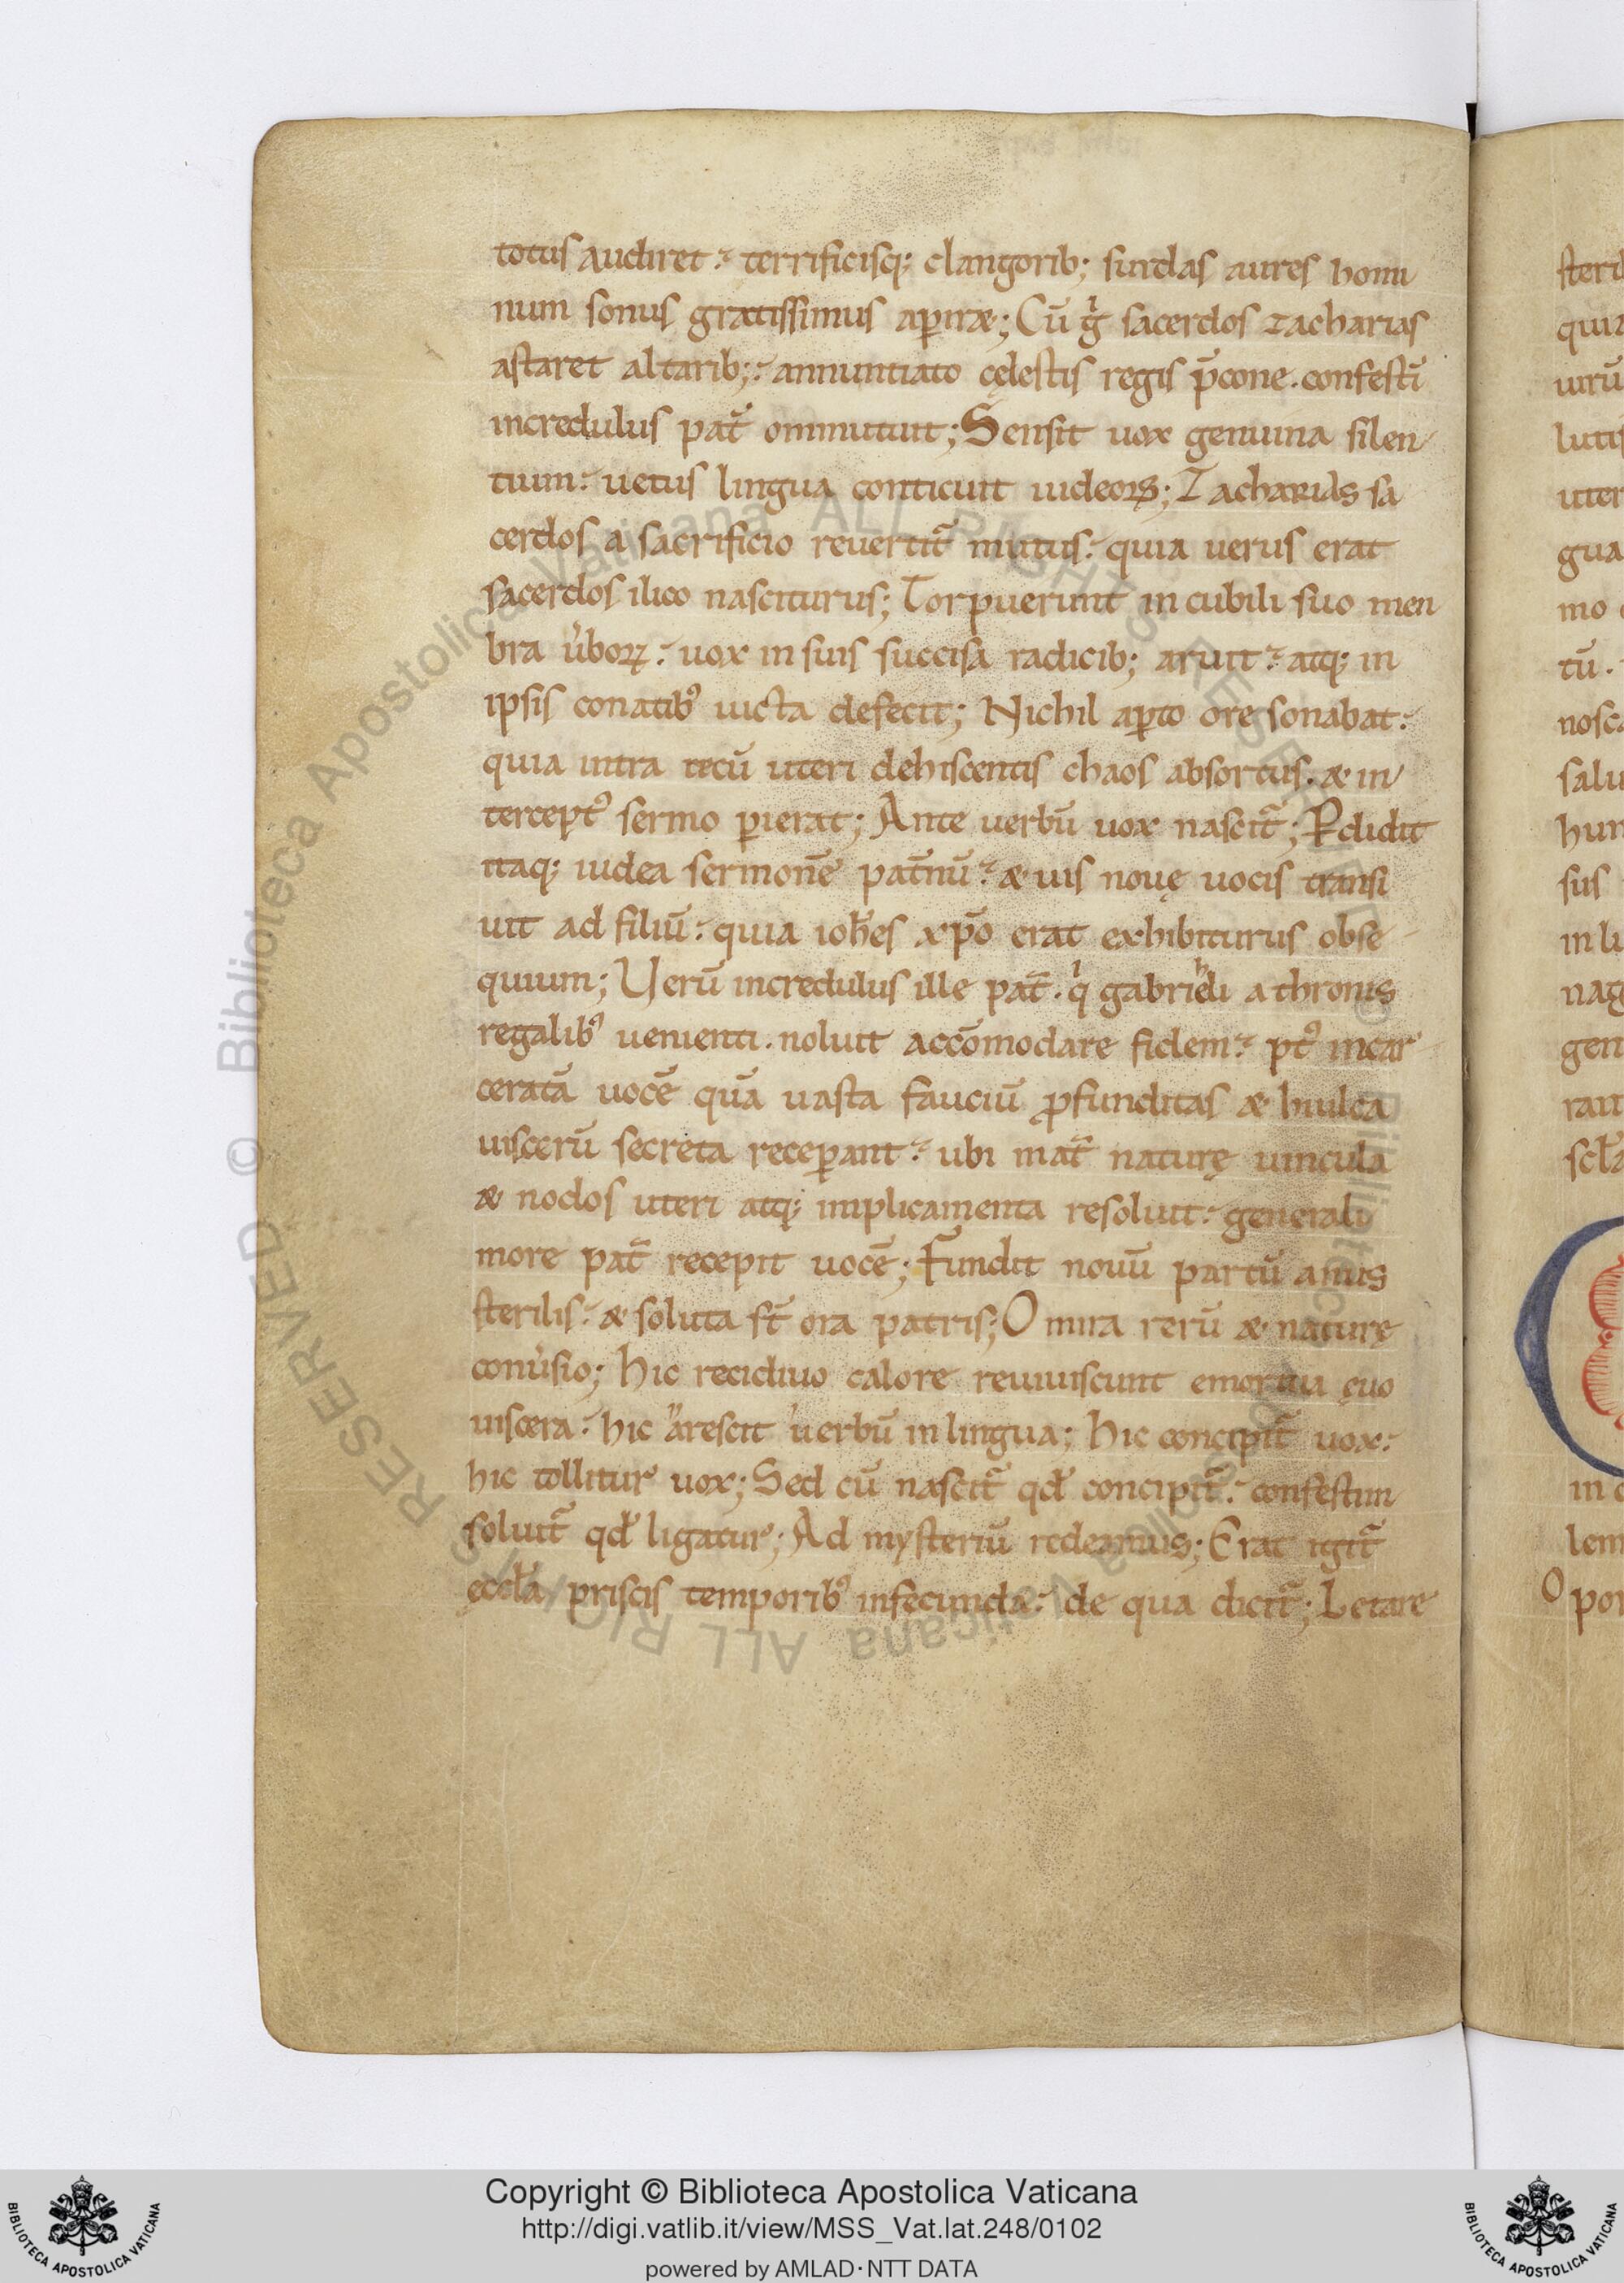 totus audiret. terrificisq; clangorib; surdas aures homi
num sonus gratissimus aꝑiræ; Cū gͥ sacerdos zacharias
astaret altarib; annuntiato cęlestis regis p̄cone. confestī
incredulus pat̄ ommutuit; Sensit uox genuina silen
tium. uetus lingua conticuit iudeoꝝ; Zacharias sa
cerdos a sacrificio reuertit̄ mutus. quia uerus erat
sacerdos ilico nasciturus; Torpuerunt in cubili suo men
bra u̓boꝝ. uox in suis succisa radicib; aruit. atq; in
ipsis conatibꝰ uicta defecit; Nichil aꝑto ore sonabat.
quia intra tecū uteri dehiscentis chaos absortus. & in
terceptꝰ sermo ꝑierat; Ante uerbū uox nascit̄; Rdidit
itaq; iudea sermonē pat̄nū. & uis nouę uocis transi
uit ad filiū. quia ioh̄es xp̄o erat exhibiturus obse
quium; Uerū incredulus ille pat̄. qͥ gabrieli a thronis
regalibꝰ uenienti. noluit accōmodare fidem. ptꝰ incar
ceratā uocē quā uasta fauciū ꝓfunditas & hiulca
uiscerū secreta receꝑant. ubi mat̄ naturę uincula
& nodos uteri atq; implicamenta resoluit. generali
more pat̄ recepit uocē; Fundit nouū partū anus
sterilis. & soluta st̄ ora patris; O mira rerū & naturę
conu̓sio; hic recidiuo calore reuiuiscunt emortua ęuo
uiscera. hic arescit uerbū in lingua; hic concipit̄ uox.
hic tollitur uox; Sed cū nascit̄ qd̄ concipit̄. confestim
soluit̄ qd̄ ligatur; Ad mysteriū redeamus; Erat igit̄
ęccl̄a priscis temporibꝰ infecunda. de qua dicit̄; Letare
steril
quia
uirū
lutis
uter
gua
mo
tū.
nosca
salu
hun
sus
in lu
nag
gen
rait
scl̄a
in
lem
O por
© Biblioteca Apostolica Vaticana ALL RIGHTS RESERVED
Copyright © Biblioteca Apostolica Vaticana
http://digi.vatlib.it/view/MSS_Vat.lat.248/0102
powered by AMLAD·NTT DATA
BIBLIOTECA APOSTOLICA VATICANA
BIBLIOTECA APOSTOLICA VATICANA